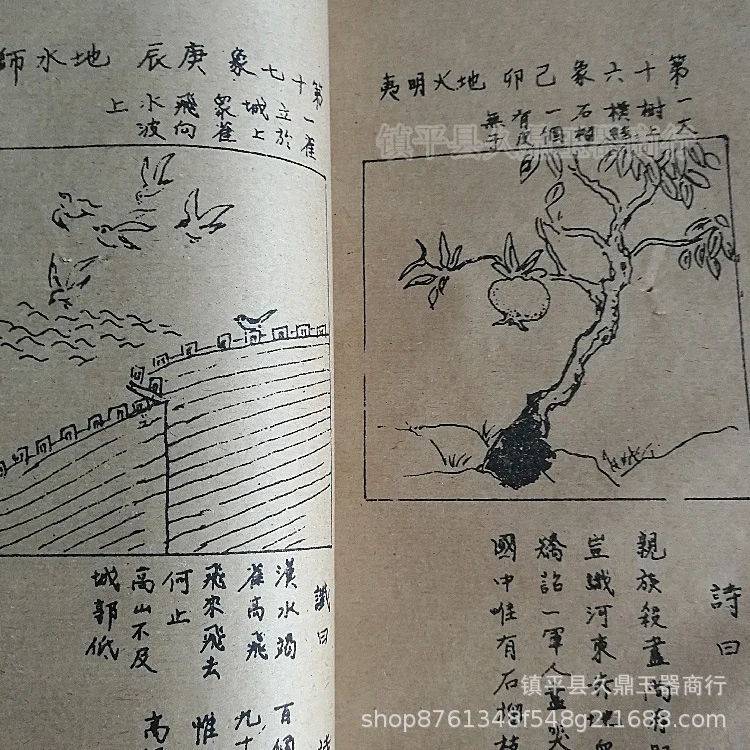 第十六象 己卯 地火明夷
一大
樹上
石榴
一個
有皮
無子
詩曰
親族殺盡尚有
豈識河東
矯詔一軍人盡哭
國中唯有石榴枝
第十七象 庚辰 地水師
一雀
立於
城上
眾雀
飛向
水波
上
讖曰
漢水竭
雀高飛
飛來飛去
何止
高山不及
城郭低
百個
九十
惟
高
镇平县久鼎玉器商行
镇平县久鼎玉器商行
shop8761348f548g2.1688.com